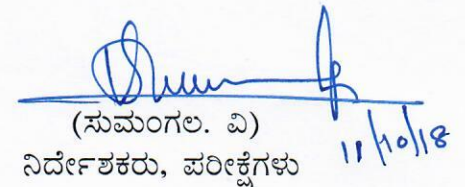 (ಸುಮಂಗಲ. ವಿ)
ನಿರ್ದೇಶಕರು, ಪರೀಕ್ಷೆಗಳು
11/10/18